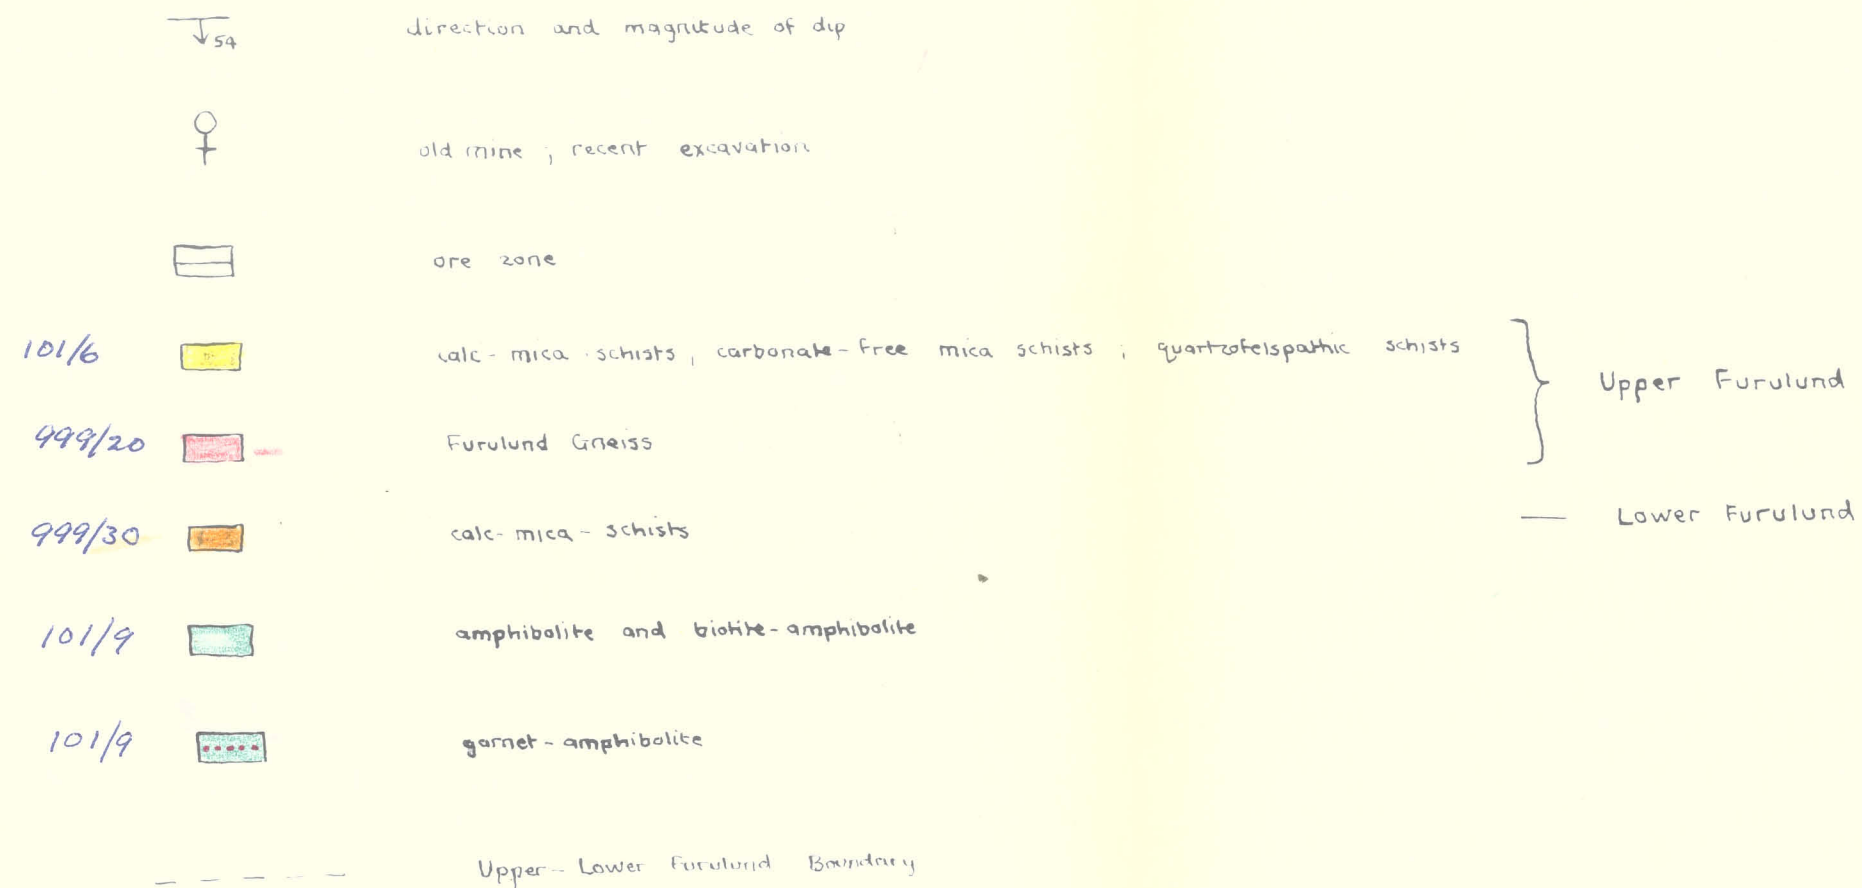 54 direction and magnitude of dip
old mine ; recent excavation
ore zone
101/6 calc-mica-schists, carbonate-free mica schists ; quartzofelspathic schists
Upper Furulund
999/20 Furulund Gneiss
999/30 calc-mica-schists
Lower Furulund
101/9 amphibolite and biotite-amphibolite
101/9 garnet-amphibolite
Upper-Lower Furulund Boundary